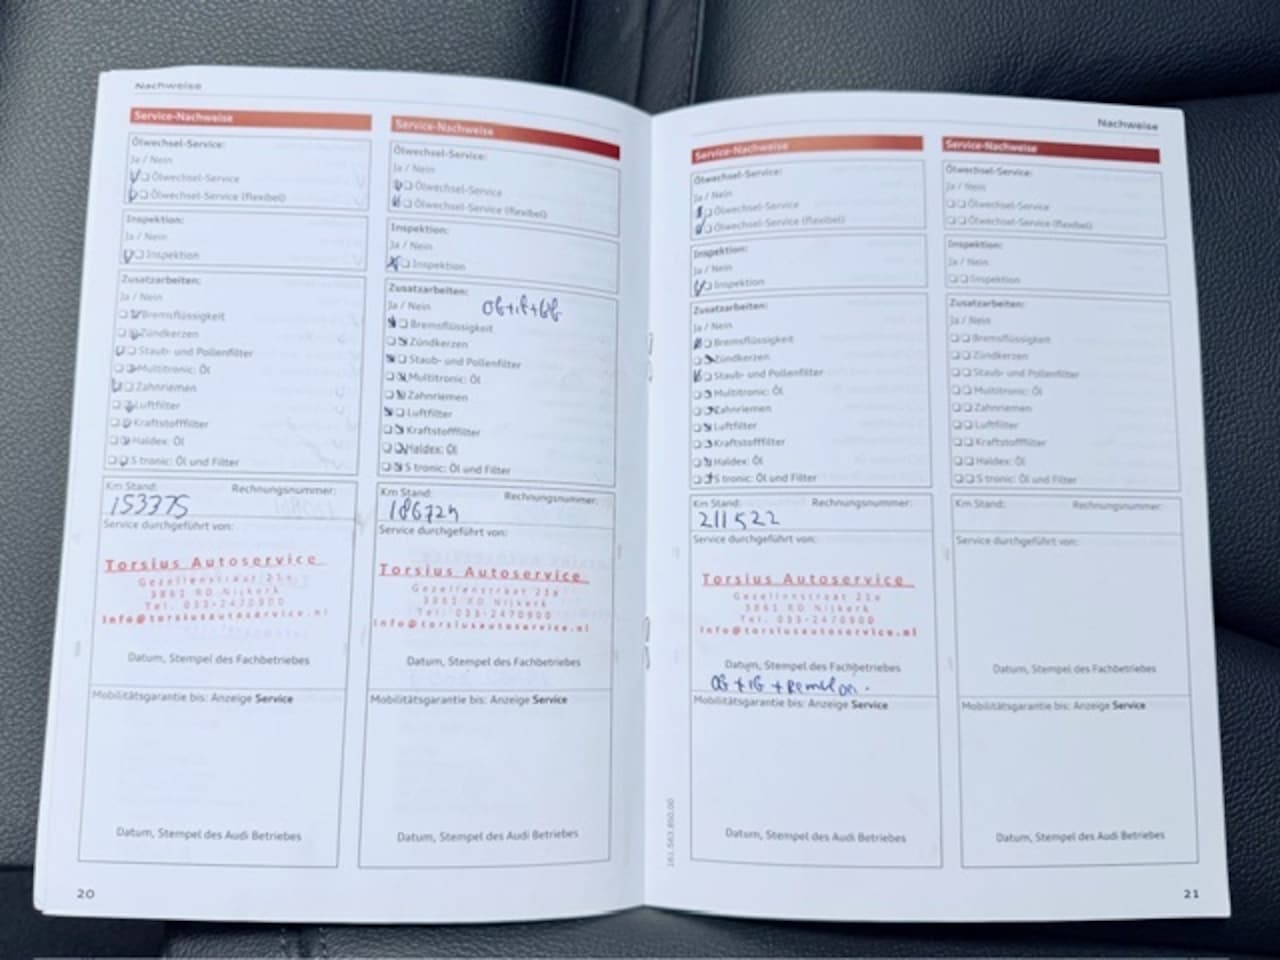 Nachweise
Service-Nachweise
Ölwechsel-Service:
Ja / Nein
Ölwechsel-Service
Ölwechsel-Service (flexibel)
Inspektion:
Ja / Nein
Inspektion
Zusatzarbeiten:
Ja / Nein
Bremsflüssigkeit
Zündkerzen
Staub- und Pollenfilter
Multitronic: Öl
Zahnriemen
Luftfilter
Kraftstofffilter
Haldex: Öl
S tronic: Öl und Filter
Km Stand: Rechnungsnummer:
153375
Service durchgeführt von:
Torsius Autoservice
Gezellenstraat 21a
3861 RD Nijkerk
Tel. 033-2470900
info@torsiusautoservice.nl
Datum, Stempel des Fachbetriebes
Mobilitätsgarantie bis: Anzeige Service
Datum, Stempel des Audi Betriebes
20
Service-Nachweise
Ölwechsel-Service:
Ja / Nein
Ölwechsel-Service
Ölwechsel-Service (flexibel)
Inspektion:
Ja / Nein
Inspektion
Zusatzarbeiten:
Ja / Nein
Bremsflüssigkeit
Zündkerzen
Staub- und Pollenfilter
Multitronic: Öl
Zahnriemen
Luftfilter
Kraftstofffilter
Haldex: Öl
S tronic: Öl und Filter
Km Stand: Rechnungsnummer:
Service durchgeführt von:
Torsius Autoservice
Gezellenstraat 21a
3861 RD Nijkerk
Tel. 033-2470900
info@torsiusautoservice.nl
Datum, Stempel des Fachbetriebes
Mobilitätsgarantie bis: Anzeige Service
Datum, Stempel des Audi Betriebes
Nachweise
Service-Nachweise
Ölwechsel-Service:
Ja / Nein
Ölwechsel-Service
Ölwechsel-Service (flexibel)
Inspektion:
Ja / Nein
Inspektion
Zusatzarbeiten:
Ja / Nein
Bremsflüssigkeit
Zündkerzen
Staub- und Pollenfilter
Multitronic: Öl
Zahnriemen
Luftfilter
Kraftstofffilter
Haldex: Öl
S tronic: Öl und Filter
Km Stand: Rechnungsnummer:
211522
Service durchgeführt von:
Torsius Autoservice
Gezellenstraat 21a
3861 RD Nijkerk
Tel. 033-2470900
info@torsiusautoservice.nl
Datum, Stempel des Fachbetriebes
Mobilitätsgarantie bis: Anzeige Service
Datum, Stempel des Audi Betriebes
Service-Nachweise
Ölwechsel-Service:
Ja / Nein
Ölwechsel-Service
Ölwechsel-Service (flexibel)
Inspektion:
Ja / Nein
Inspektion
Zusatzarbeiten:
Ja / Nein
Bremsflüssigkeit
Zündkerzen
Staub- und Pollenfilter
Multitronic: Öl
Zahnriemen
Luftfilter
Kraftstofffilter
Haldex: Öl
S tronic: Öl und Filter
Km Stand: Rechnungsnummer:
Service durchgeführt von:
Datum, Stempel des Fachbetriebes
Mobilitätsgarantie bis: Anzeige Service
Datum, Stempel des Audi Betriebes
21